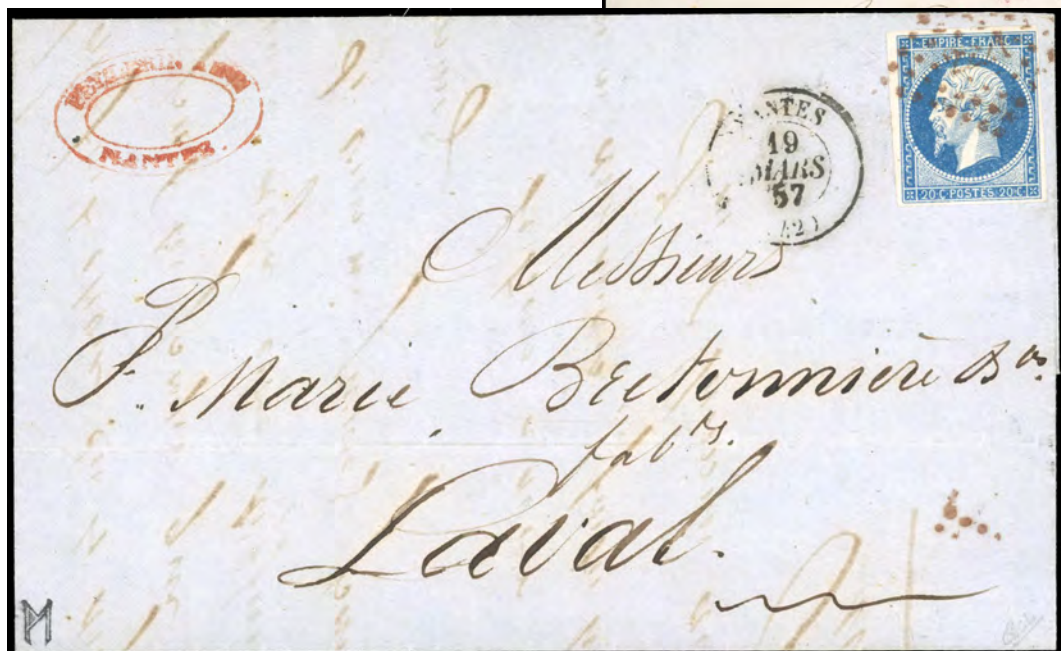 NANTES
NANTES
19
MARS
57
EMPIRE FRANC
20 C POSTES 20 C
Messieurs
P. Marie Bretonnière
fabts.
Laval.
M